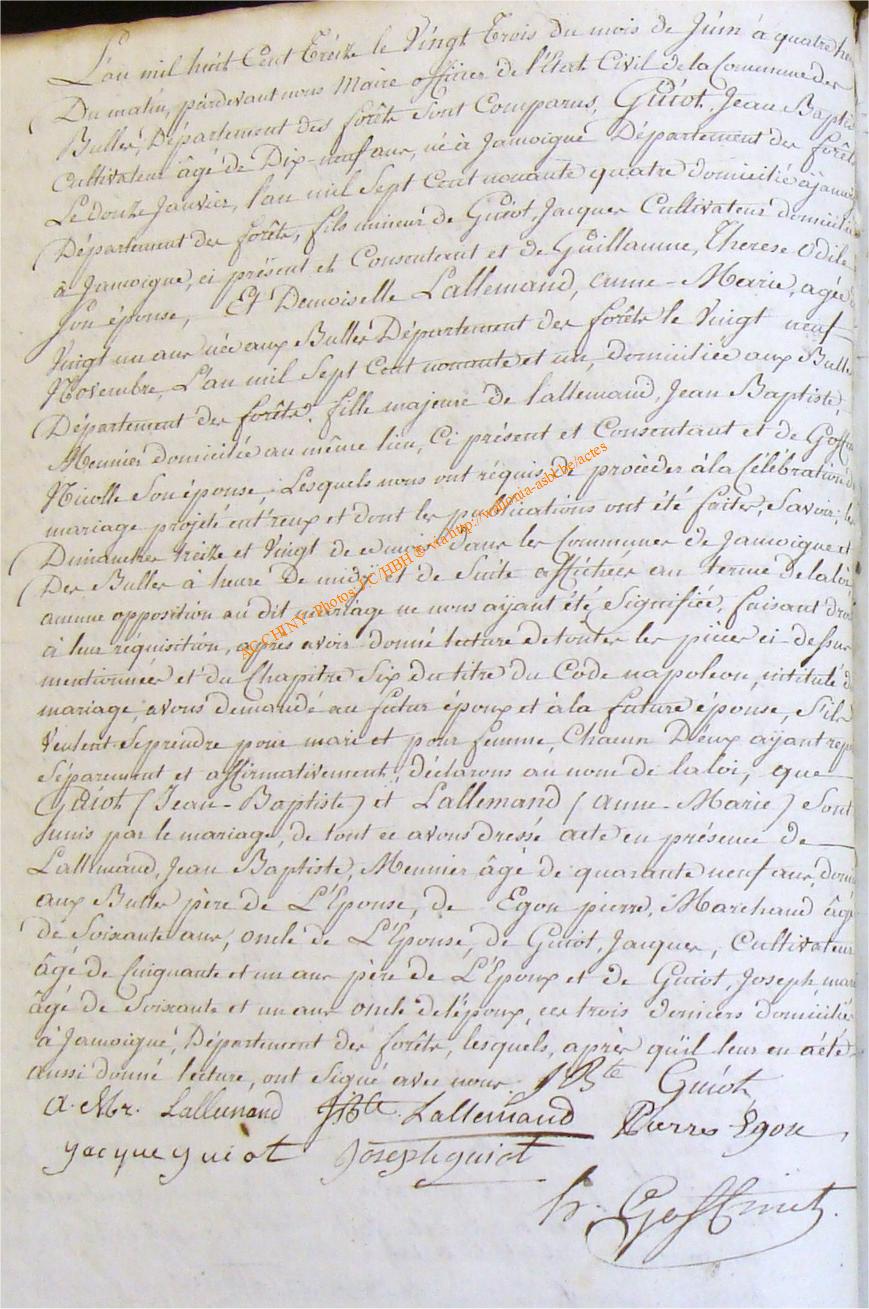 L'an mil huit Cent Treize le Vingt Trois du mois de Juin à quatre heu
Du matin, pardevant nous Maire officier de l'Etat Civil de la Commune des
Bulles, Département des forêts Sont Comparus, Guiot, Jean Baptis
Cultivateur âgé de Dix-neuf ans, né à Jamoigne Département des forêts
Le douze Janvier, l'an mil Sept Cent nonante quatre domicilié à Jamoig
Département des forêts, fils mineur de Guiot, Jacques Cultivateur domicilié
à Jamoigne, ci présent et Consentant et de Guillaume, Therese Odile
Son épouse, Et Demoiselle Lallemand, anne-Marie, agée
Vingt un ans née aux Bulles Département des forêts le Vingt neuf
Novembre, L'an mil Sept Cent nonante et un, domiciliée aux Bulle
Département des forêts, fille majeure de Lallemand, Jean Baptiste,
Meunier domicilié au même lieu, Ci présent et Consentant et de Goffin
Nicolle Son épouse, Lesquels nous ont réquis de procèder à la Célébration d
mariage projeté entr'eux et dont les publications ont été faites, Savoir, les
Dimanches treize et Vingt de dans les Communes de Jamoigne et
Des Bulles à heure De midi et de Suite affichées au terme de la loi
aucune opposition au dit mariage ne nous ayant été Signifiée, faisant droi
à leur réquisition, après avoir donné lecture de toutes les pièces ci-dessus
mentionnées et du Chapitre Six du titre du Code napoleon, intitulé d
mariage, avons demandé au futur époux et à la future épouse, S'ils
Veulent Se prendre pour mari et pour femme, Chacun D'eux ayant repo
Séparement et affirmativement, déclarons au nom de la loi, que
Guiot (Jean-Baptiste) et Lallemand (anne-Marie) Sont
unis par le mariage, de tout ce avons dressé acte en présence de
Lallemand, Jean Baptiste, Meunier âgé de quarante neuf ans, domi
aux Bulles père de L'Epouse, de Egon pierre, Marchand âgé
de Soixante ans, oncle de L'Epouse, de Guiot, Jacques, Cultivateur
âgé de Cinquante et un ans père de L'Epoux et de Guiot, Joseph mar
âgé de Soixante et un ans oncle de l'époux, ces trois derniers domiciliés
à Jamoigne, Département des forêts, lesquels, après qu'il leur en a été
aussi donné lecture, ont Signé avec nous. JBte Guiot
a. Mr. Lallemand JBte. Lallemand Pierres Egon
yacque guiot Joseph guiot
h. Goffinet
AC CHINY - Photos TC/HBH © via http://wallonia-asbl.be/actes